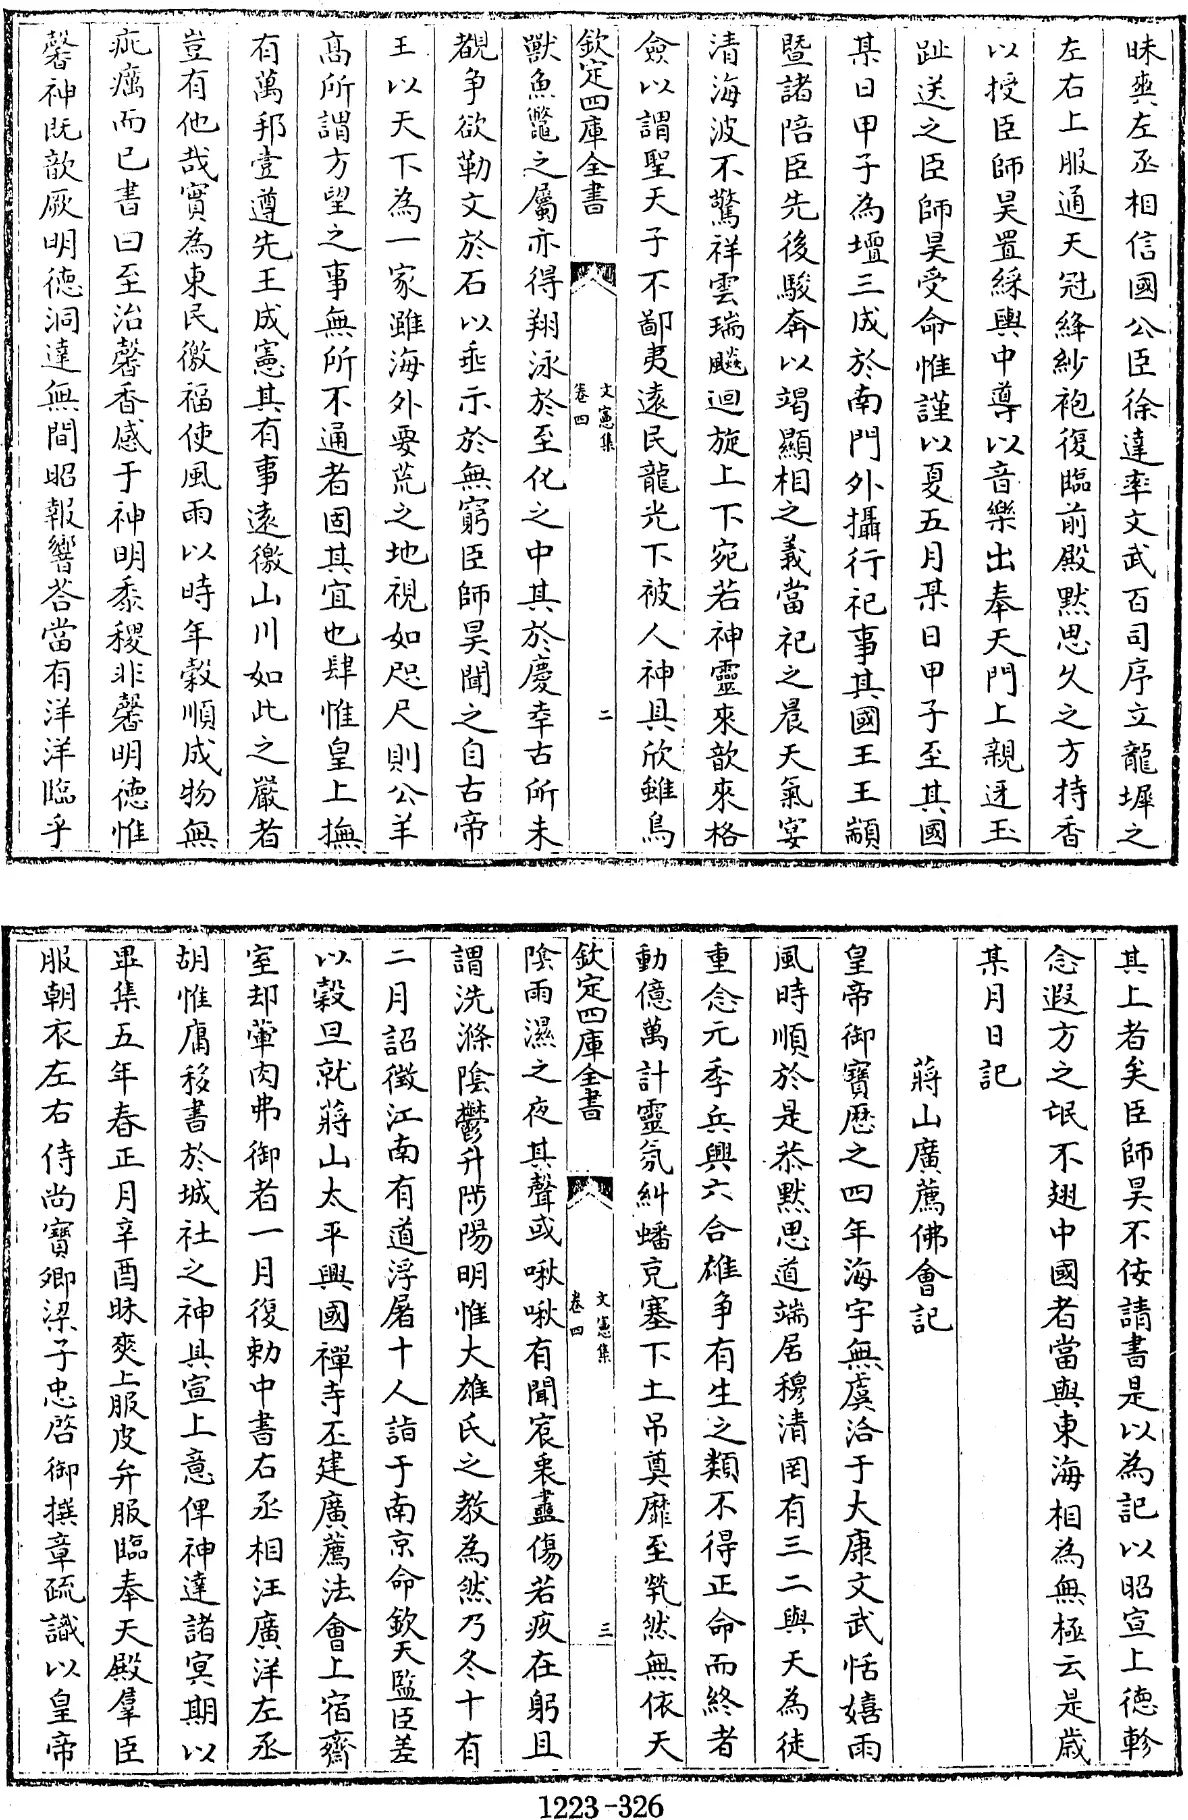 昧爽左丞相信國公臣徐達率文武百司序立龍墀之
左右上服通天冠絳紗袍復臨前殿默思久之方持香
以授臣師昊置綵輿中導以音樂出奉天門上親迓玉
趾送之臣師昊受命惟謹以夏五月某日甲子至其國
某日甲子為壇三成於南門外攝行祀事其國王王顓
暨諸陪臣先後駿奔以竭顯相之義當祀之晨天氣宴
清海波不驚祥雲瑞飈迴旋上下宛若神靈來歆來格
僉以謂聖天子不鄙夷遠民龍光下被人神具欣雖鳥
欽定四庫全書
文憲集
卷四
二
獸魚鼈之屬亦得翔泳於至化之中其於慶幸古所未
覩争欲勒文於石以垂示於無窮臣師昊聞之自古帝
王以天下為一家雖海外要荒之地視如咫尺則公羊
高所謂方望之事無所不通者固其宜也肆惟皇上撫
有萬邦壹遵先王成憲其有事遠徼山川如此之嚴者
豈有他哉實為東民徼福使風雨以時年穀順成物無
疵癘而已書曰至治馨香感于神明黍稷非馨明德惟
馨神既歆厥明德洞達無間昭報響荅當有洋洋臨乎
其上者矣臣師昊不佞請書是以為記以昭宣上德軫
念遐方之氓不翅中國者當與東海相為無極云是歲
某月日記
蔣山廣薦佛會記
皇帝御寶歴之四年海宇無虞洽于大康文武恬嬉雨
風時順於是恭默思道端居穆清罔有三二與天為徒
重念元季兵興六合雄争有生之類不得正命而終者
動億萬計靈氛糾蟠充塞下土吊奠靡至煢然無依天
欽定四庫全書
文憲集
卷四
三
陰雨濕之夜其聲或啾啾有聞宸衷盡傷若疚在躬且
謂洗滌陰鬱升陟陽明惟大雄氏之教為然乃冬十有
二月詔徵江南有道浮屠十人詣于南京命欽天監臣差
以穀旦就蔣山太平興國禪寺丕建廣薦法會上宿齋
室却葷肉弗御者一月復勅中書右丞相汪廣洋左丞
胡惟庸移書於城社之神具宣上意俾神達諸冥期以
畢集五年春正月辛酉昧爽上服皮弁服臨奉天殿羣臣
服朝衣左右侍尚寶卿梁子忠啓御撰章疏識以皇帝
1223-326